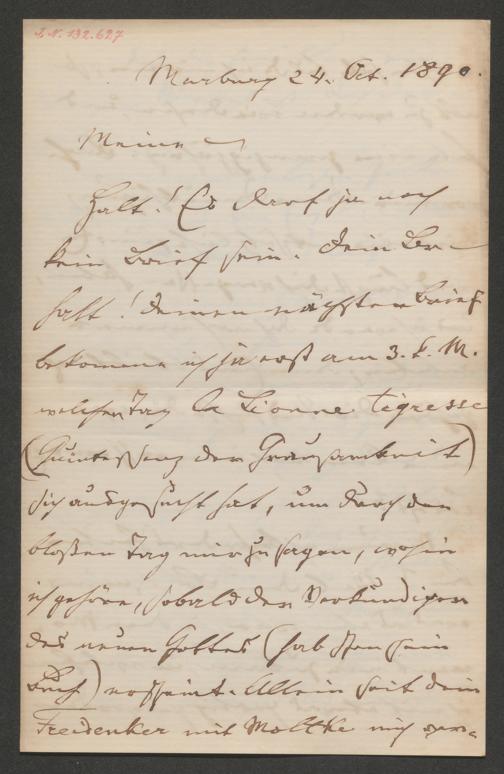 I. N. 132.627
Marburg 24. Oct. 1890.
Meine
Halt! Es darf ja noch
kein Brief sein. Dein Be-
halt! Deinen nächsten Brief
bekomme ich ja erst am 3. k. M.
welchen Tag la Lionne tigresse
(Quintessenz der Grausamkeit)
sich ausgesucht hat, um durch den
bloßen Tag mir zu sagen, wohin
ich gehöre, sobald der Verkündiger
des neuen Gottes (hab sein
Buch) erscheint. Allein seit dem
Freidenker mit Moltke mich